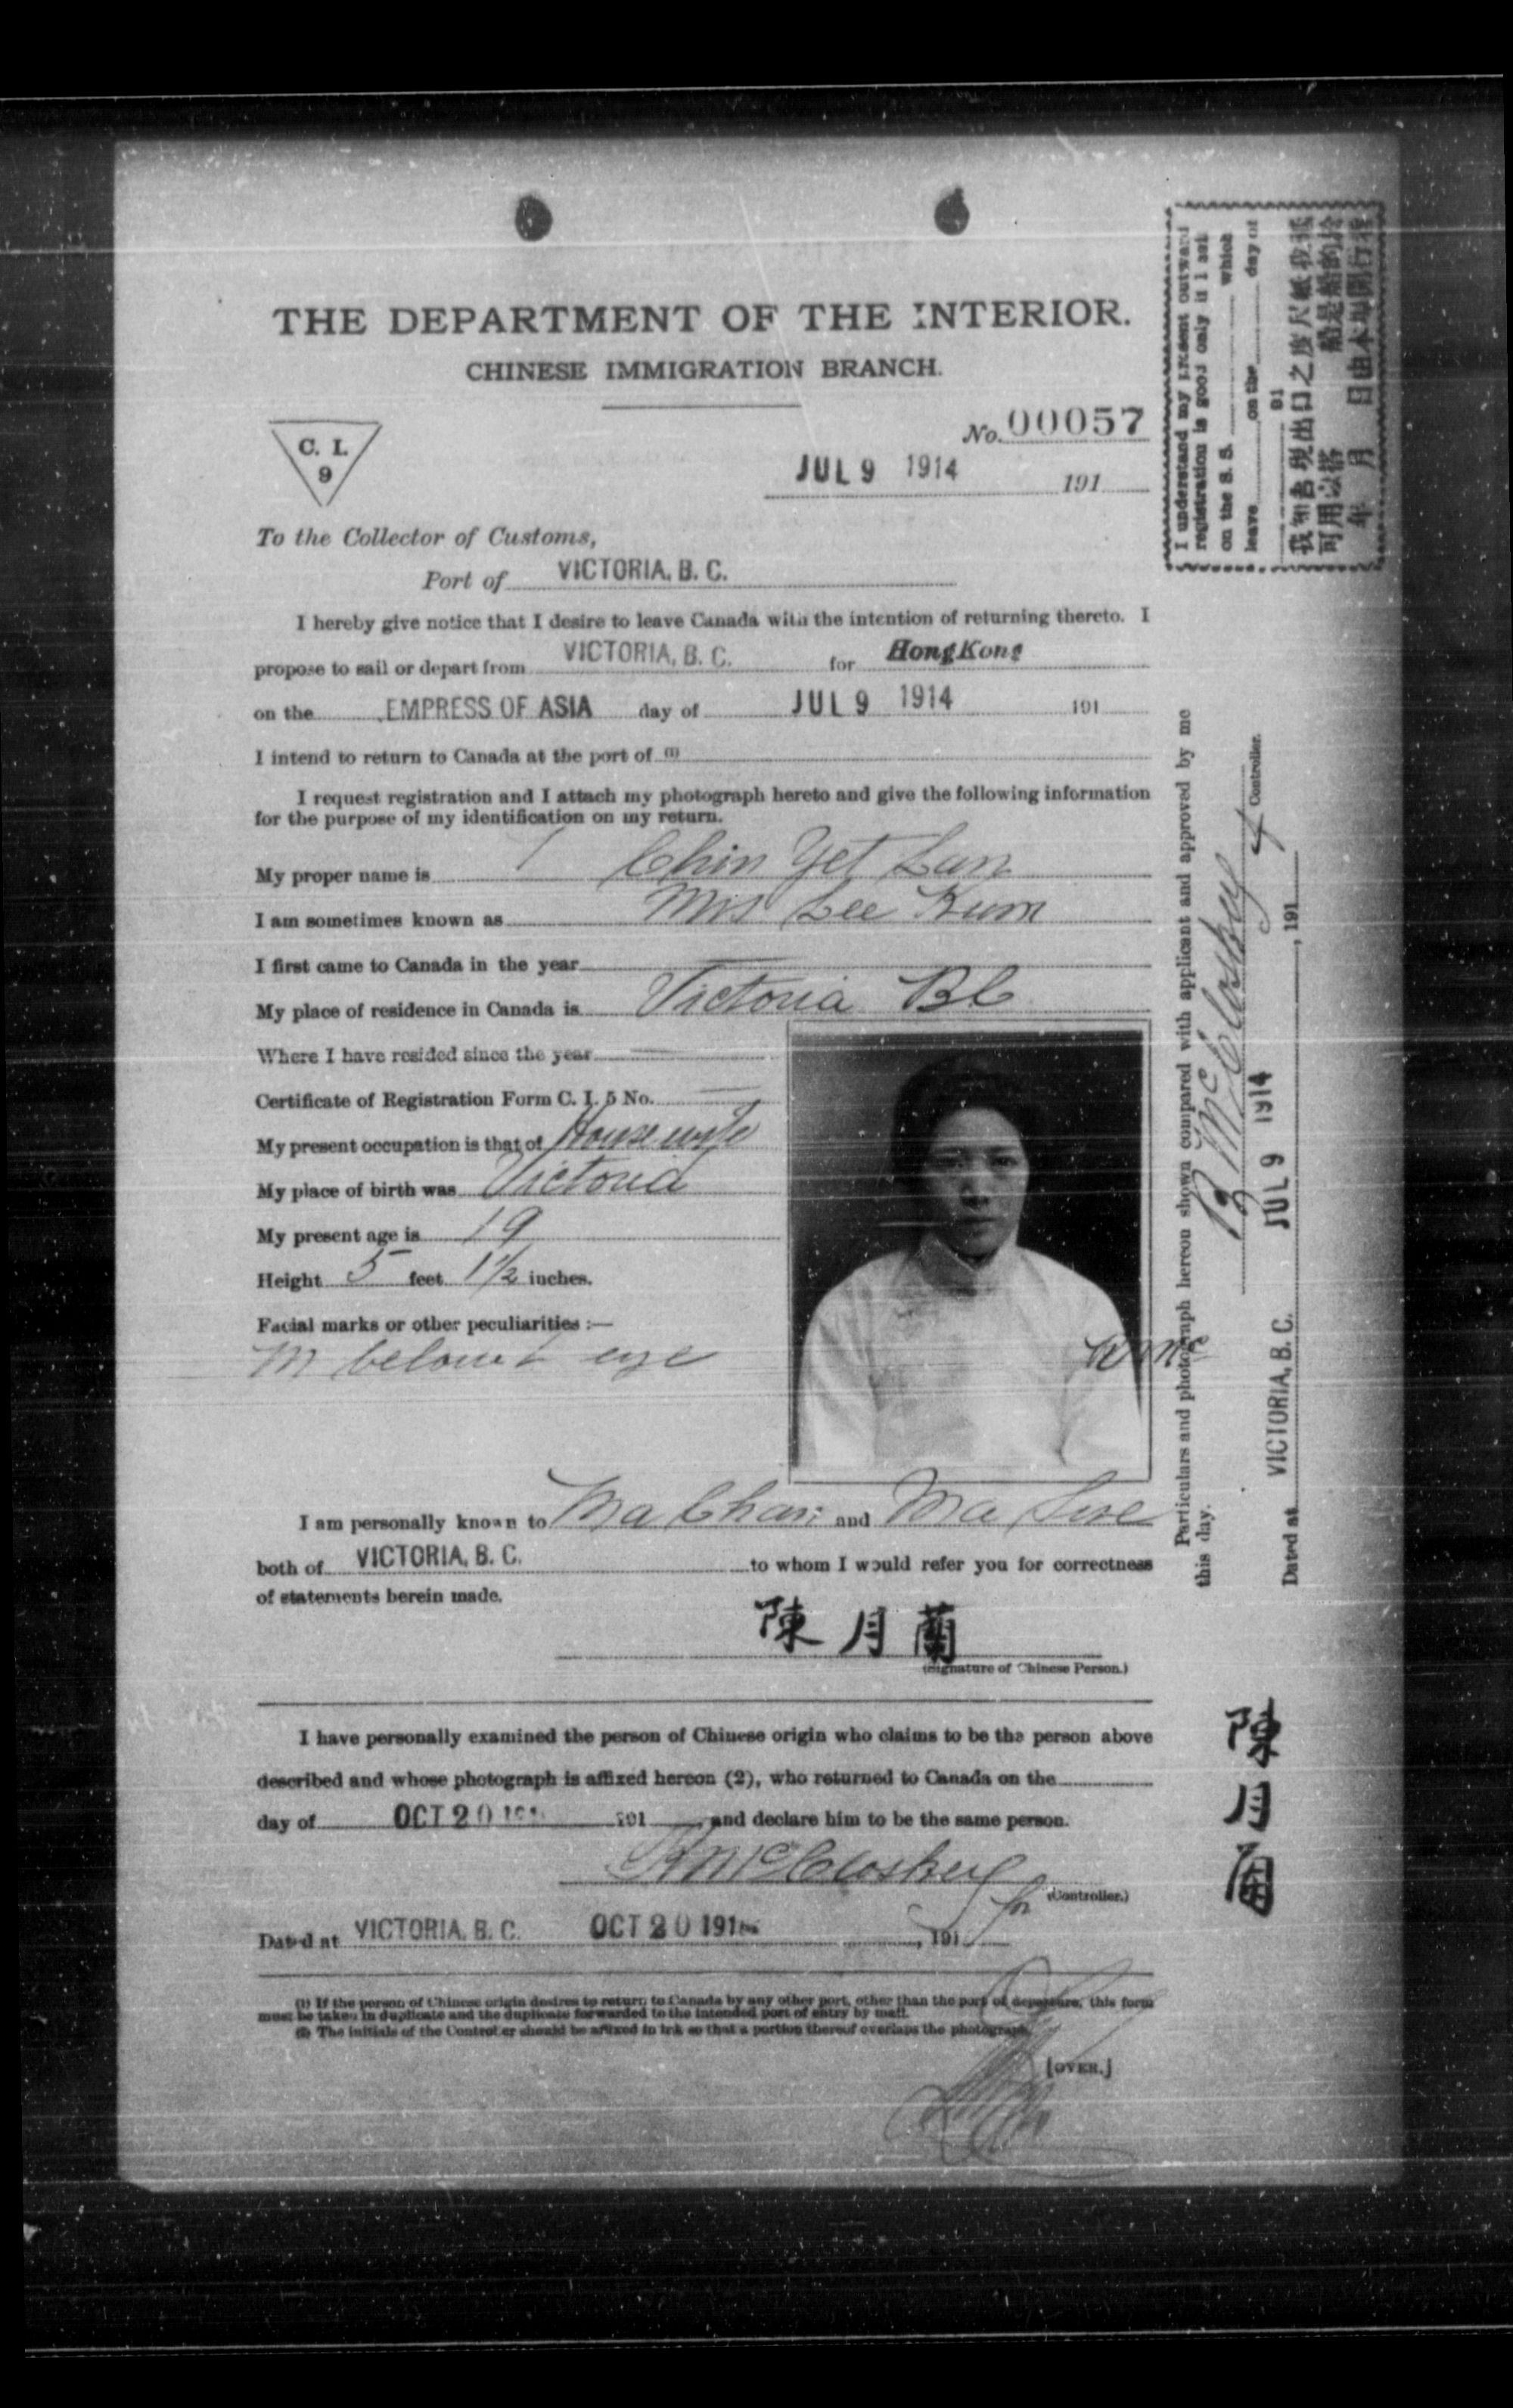 THE DEPARTMENT OF THE INTERIOR.
CHINESE IMMIGRATION BRANCH.
C. I.
9
No. 00057
JUL 9 1914 191
To the Collector of Customs,
Port of VICTORIA, B. C.
I hereby give notice that I desire to leave Canada with the intention of returning thereto. I
propose to sail or depart from VICTORIA, B. C. for HongKong
on the EMPRESS OF ASIA day of JUL 9 1914 191
I intend to return to Canada at the port of (1)
I request registration and I attach my photograph hereto and give the following information
for the purpose of my identification on my return.
My proper name is Chin Yet Lan
I am sometimes known as Mrs Lee Kum
I first came to Canada in the year
My place of residence in Canada is Victoria BC
Where I have resided since the year
Certificate of Registration Form C. I. 5 No.
My present occupation is that of Housewife
My place of birth was Victoria
My present age is 19
Height 5 feet 1 1/2 inches.
Facial marks or other peculiarities :—
M below L eye
I am personally known to Ma Chan and Ma
both of VICTORIA, B. C. to whom I would refer you for correctness
of statements herein made.
陳月蘭
(Signature of Chinese Person.)
I have personally examined the person of Chinese origin who claims to be the person above
described and whose photograph is affixed hereon (2), who returned to Canada on the
day of OCT 20 191 and declare him to be the same person.
McCloskey
(Controller.)
Dated at VICTORIA, B. C. OCT 20 191 , 191
(1) If the person of Chinese origin desires to return to Canada by any other port, other than the port of departure, this form
must be taken in duplicate and the duplicate forwarded to the intended port of entry by mail.
(2) The initials of the Controller should be affixed in ink so that a portion thereof overlaps the photograph.
[OVER.]
I understand my present outward
registration is good only if I ask
on the S. S. which
leave on the day of
91
年 月 日由本埠開行
Particulars and photograph hereon shown compared with applicant and approved by me
this day.
McCloskey
Controller.
Dated at VICTORIA, B. C. JUL 9 1914 , 191
陳月蘭